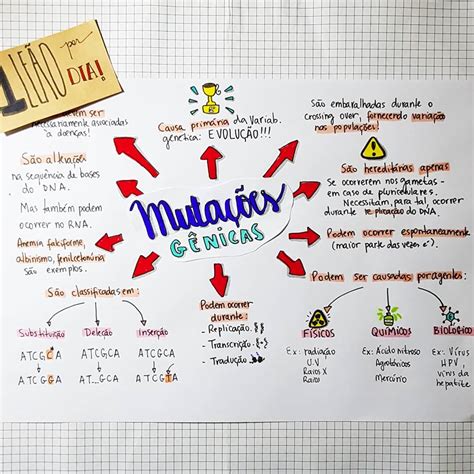 1 LEÃO por
DIA!
Mutações
GÊNICAS
ser
necessariamente associadas
a doenças!
Causa primária da variab.
genética: EVOLUÇÃO!!!
São embaralhadas durante o
crossing over, fornecendo variação
nas populações!
São alterações
na sequência de bases
do DNA.
Mas também podem
ocorrer no RNA.
Anemia falciforme,
albinismo, fenilcetonúria
são exemplos.
São hereditárias apenas
Se ocorrerem nos gametas -
em caso de pluricelulares.
Necessitam, para tal, ocorrer
durante replicação do DNA.
Podem ocorrer espontaneamente
(maior parte das vezes
São classificadas em:
Substituição
ATCGCA
ATCGGA
Deleção
ATCGCA
AT...GCA
Inserção
ATCGCA
ATCGTA
Podem ocorrer
durante:
- Replicação.
- Transcrição.
- Tradução
Podem ser causadas por agentes:
FÍSICOS
Ex: radiação
U.V
Raios
Raios X
QUÍMICOS
Ex: Ácido nitroso
Agrotóxicos
Mercúrio
BIOLÓGICO
Ex: Vírus
HPV,
vírus da
hepatite